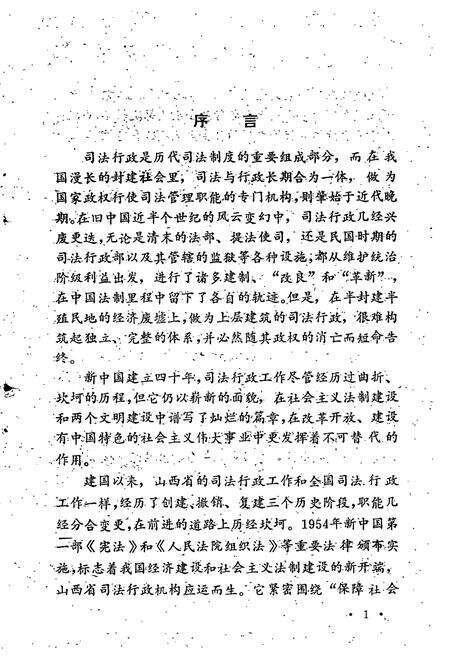 序言
司法行政是历代司法制度的重要组成部分，而在我
国漫长的封建社会里，司法与行政长期合为一体，做为
国家政权行使司法管理职能的专门机构，则肇始于近代晚
期。在旧中国近半个世纪的风云变幻中，司法行政几经兴
废更迭，无论是清末的法部、提法使司，还是民国时期的
司法行政部以及其管辖的监狱等各种设施，都从维护统治
阶级利益出发，进行了诸多建制、“改良”和“革新”，
在中国法制里程中留下了各自的轨迹。但是，在半封建半
殖民地的经济废墟上，做为上层建筑的司法行政，很难构
筑起独立、完整的体系，并必然随其政权的消亡而短命告
终。
新中国建立四十年，司法行政工作尽管经历过曲折、
坎坷的历程，但它仍以崭新的面貌，在社会主义法制建设
和两个文明建设中谱写了灿烂的篇章，在改革开放、建设
有中国特色的社会主义伟大事业中更发挥着不可替代的
作用。
建国以来，山西省的司法行政工作和全国司法行政
工作一样，经历了创建、撤销、复建三个历史阶段，职能几
经分合变更，在前进的道路上历经坎坷。1954年新中国第
一部《宪法》和《人民法院组织法》等重要法律颁布实
施，标志着我国经济建设和社会主义法制建设的新开端，
山西省司法行政机构应运而生。它紧密围绕“保障社会
• 1 •